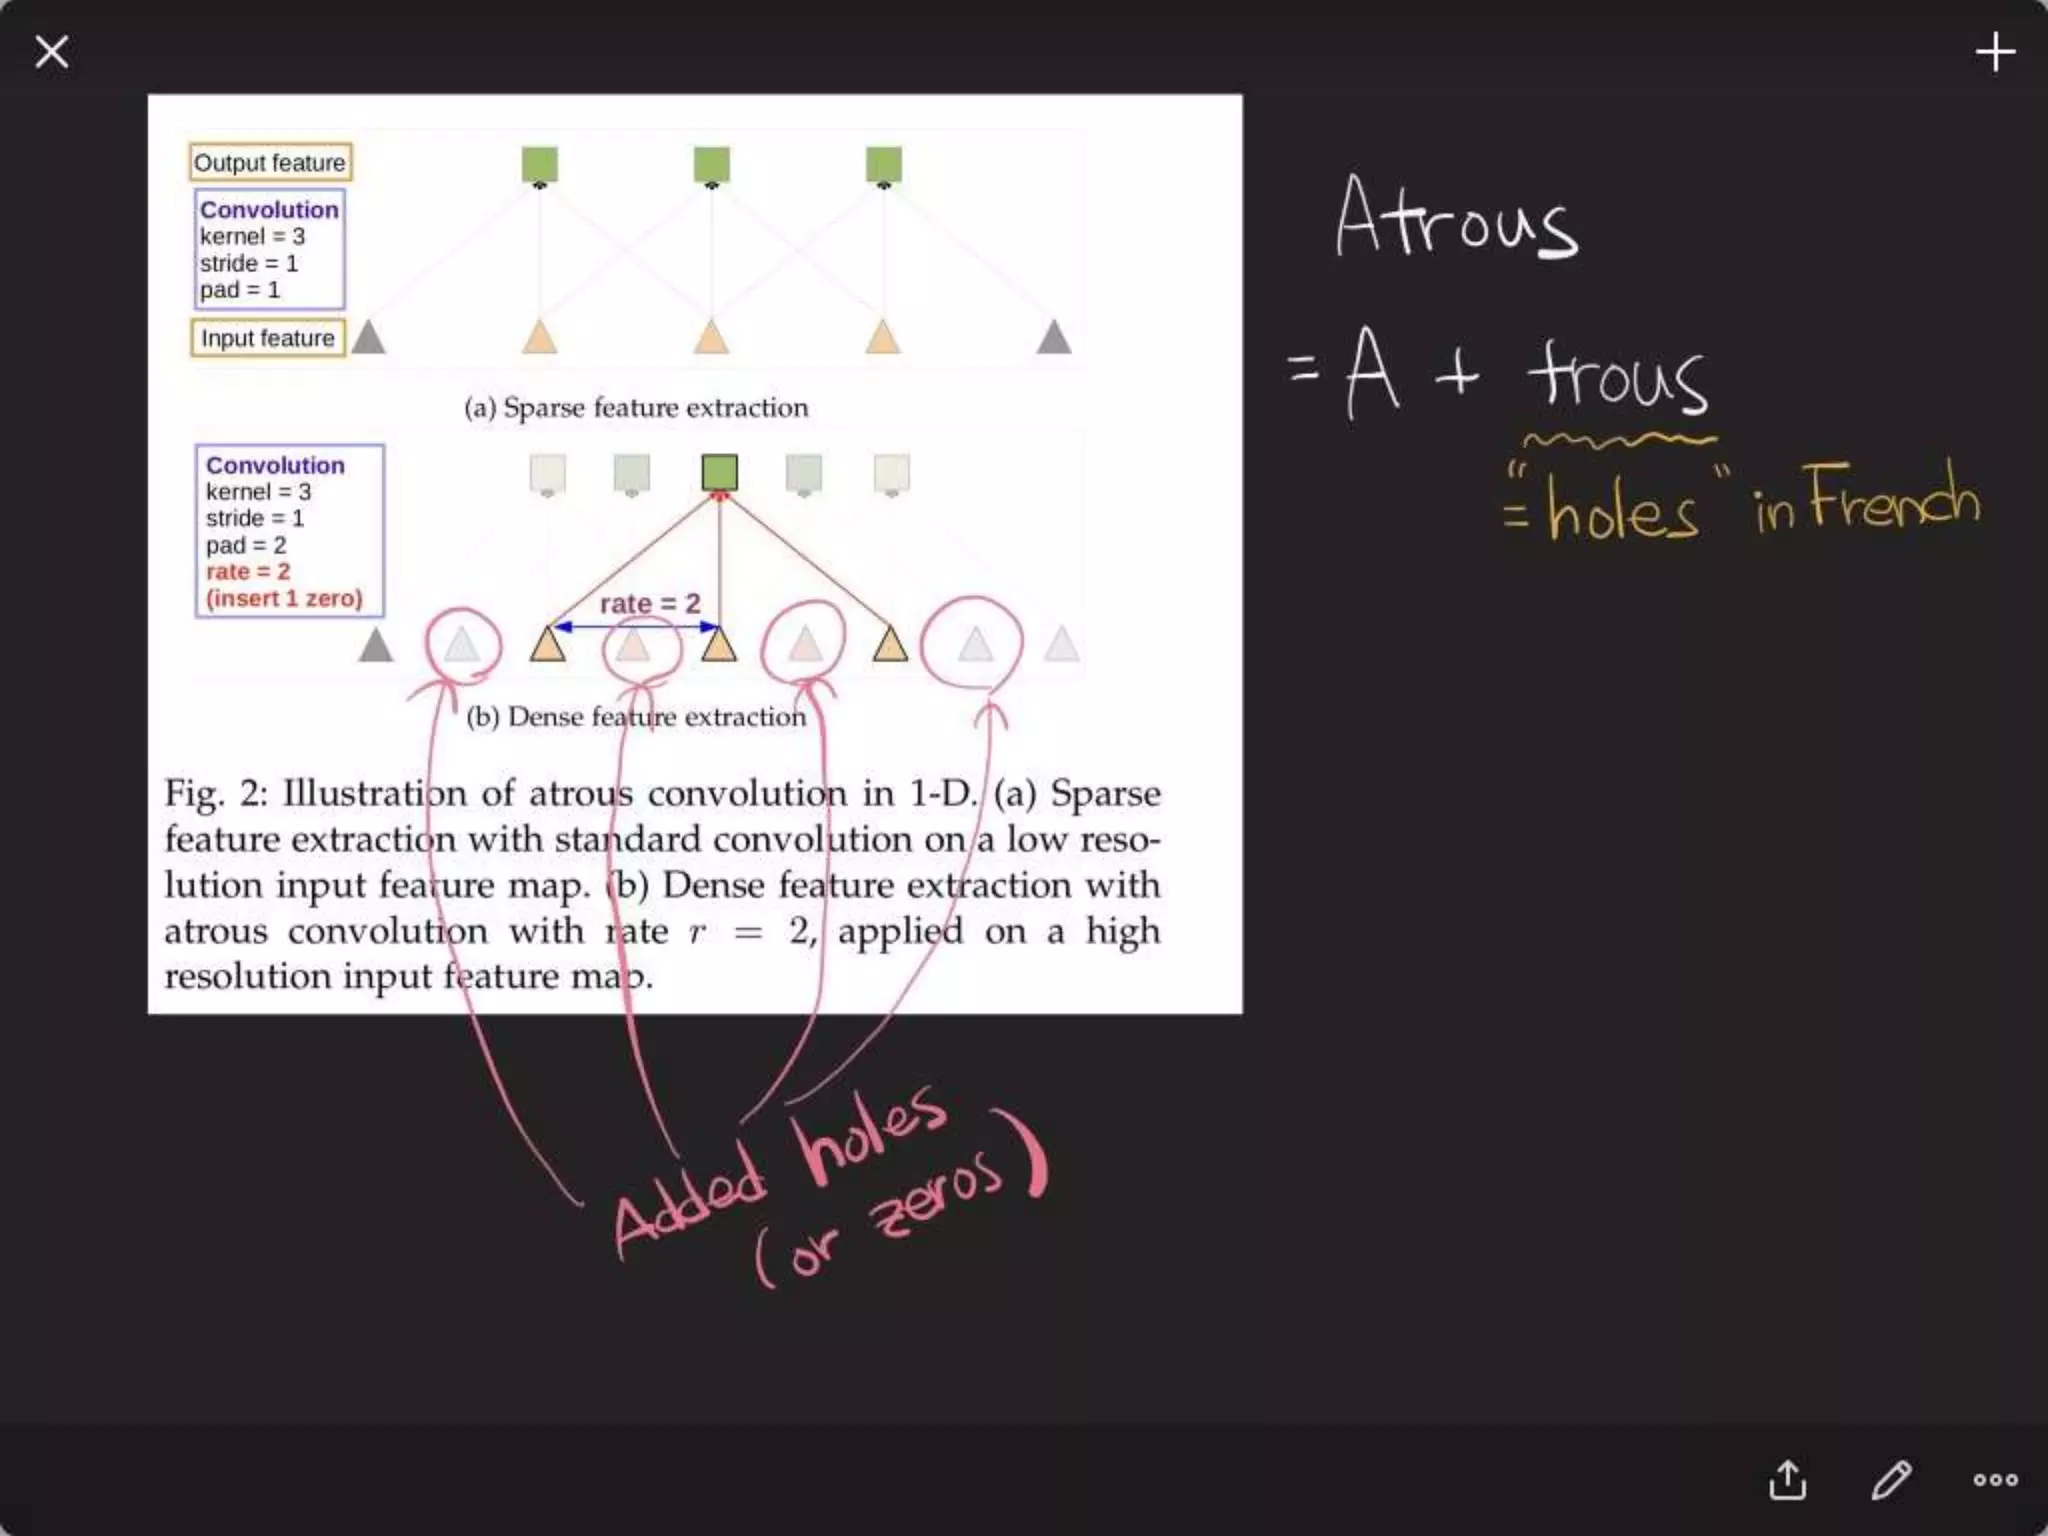 Output feature
Convolution
kernel = 3
stride = 1
pad = 1
Input feature
(a) Sparse feature extraction
Convolution
kernel = 3
stride = 1
pad = 2
rate = 2
(insert 1 zero)
rate = 2
(b) Dense feature extraction
Fig. 2: Illustration of atrous convolution in 1-D. (a) Sparse
feature extraction with standard convolution on a low reso-
lution input feature map. (b) Dense feature extraction with
atrous convolution with rate r = 2, applied on a high
resolution input feature map.
Atrous
= A + trous
= "holes" in French
Added holes
(or zeros)